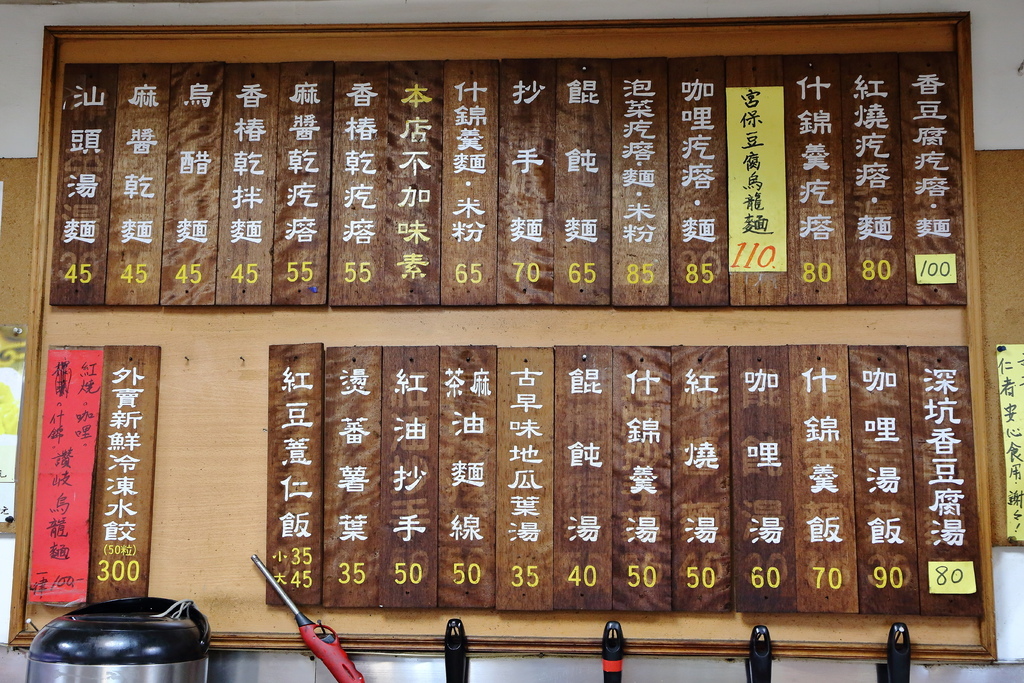 香豆腐疙瘩·麵 100
紅燒疙瘩·麵 80
什錦羹疙瘩 80
宮保豆腐烏龍麵 110.
咖哩疙瘩·麵 85
泡菜疙瘩麵·米粉 85
餛飩麵 65
抄手麵 70
什錦羹麵·米粉 65
本店不加味素
香椿乾疙瘩 55
麻醬乾疙瘩 55
香椿乾拌麵 45
烏醋麵 45
麻醬乾麵 45
汕頭湯麵 45
深坑香豆腐湯 80
咖哩湯飯 90
什錦羹飯 70
咖哩湯 60
紅燒湯 50
什錦羹湯 50
餛飩湯 40
古早味地瓜葉湯 35
麻油麵線
茶 50
紅油抄手 50
燙蕃薯葉 35
紅豆薏仁飯 小35 大45
外賣新鮮冷凍水餃 (50粒) 300
紅燒。咖哩。
什錦 讚岐烏龍麵
一律100.-
仁者安心食用。謝谢!